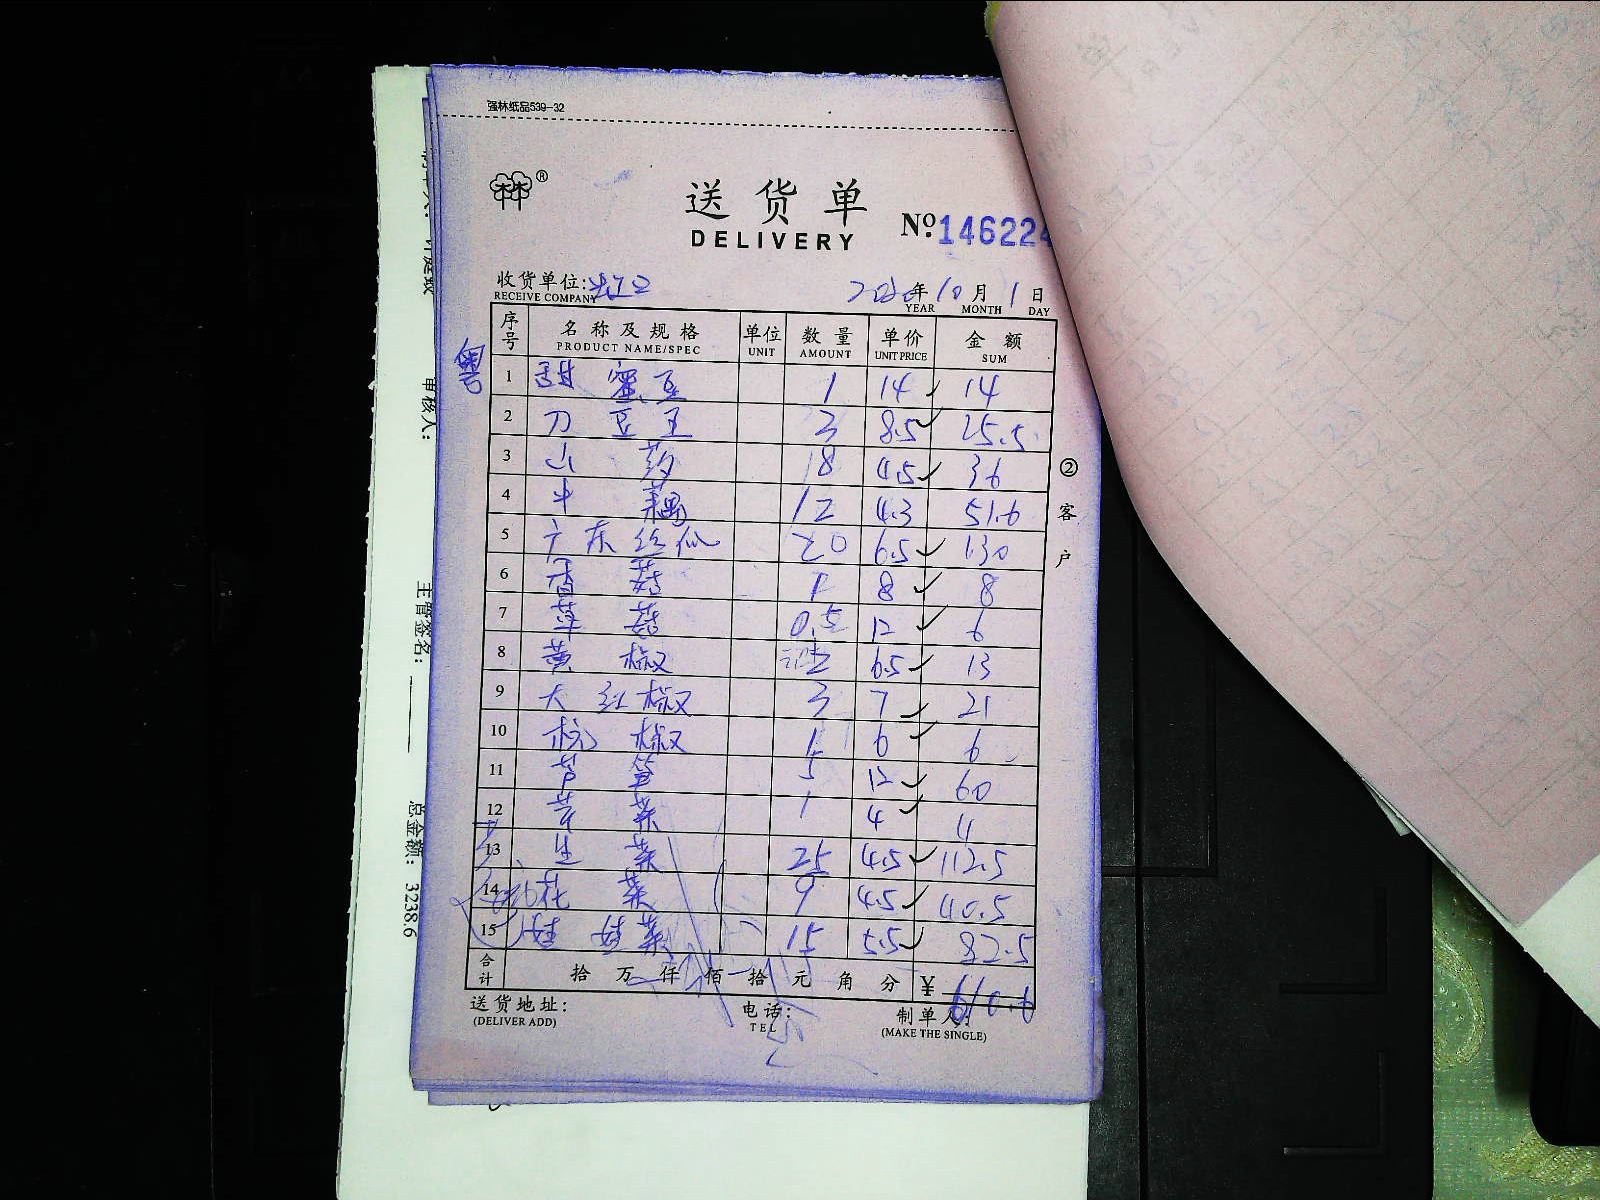 强林纸品539-32
®
送货单
DELIVERY
№.146224
收货单位:
RECEIVE COMPANY
2020年10月1日
YEAR MONTH DAY
序号 名称及规格 单位 数量 单价 金额
PRODUCT NAME/SPEC UNIT AMOUNT UNIT PRICE SUM
粤
1 甜蜜豆 1 14 14
2 刀豆王 3 8.5 25.5
3 山药 18 4.5 36
4 中藕 12 4.3 51.6
5 广东丝瓜 20 6.5 130
6 香菇 1 8 8
7 草菇 0.5 12 6
8 黄椒 2 6.5 13
9 大红椒 3 7 21
10 杭椒 1 6 6
11 芦笋 5 12 60
12 芹菜 1 4 4
13 生菜 25 4.5 112.5
14 花菜 9 4.5 40.5
15 娃娃菜 15 5.5 82.5
合计 拾万仟佰拾元角分 ¥ 610.6
送货地址:
(DELIVER ADD)
电话:
TEL
制单人:
(MAKE THE SINGLE)
②客户
审核人:
主管签名:
总金额: 3238.6